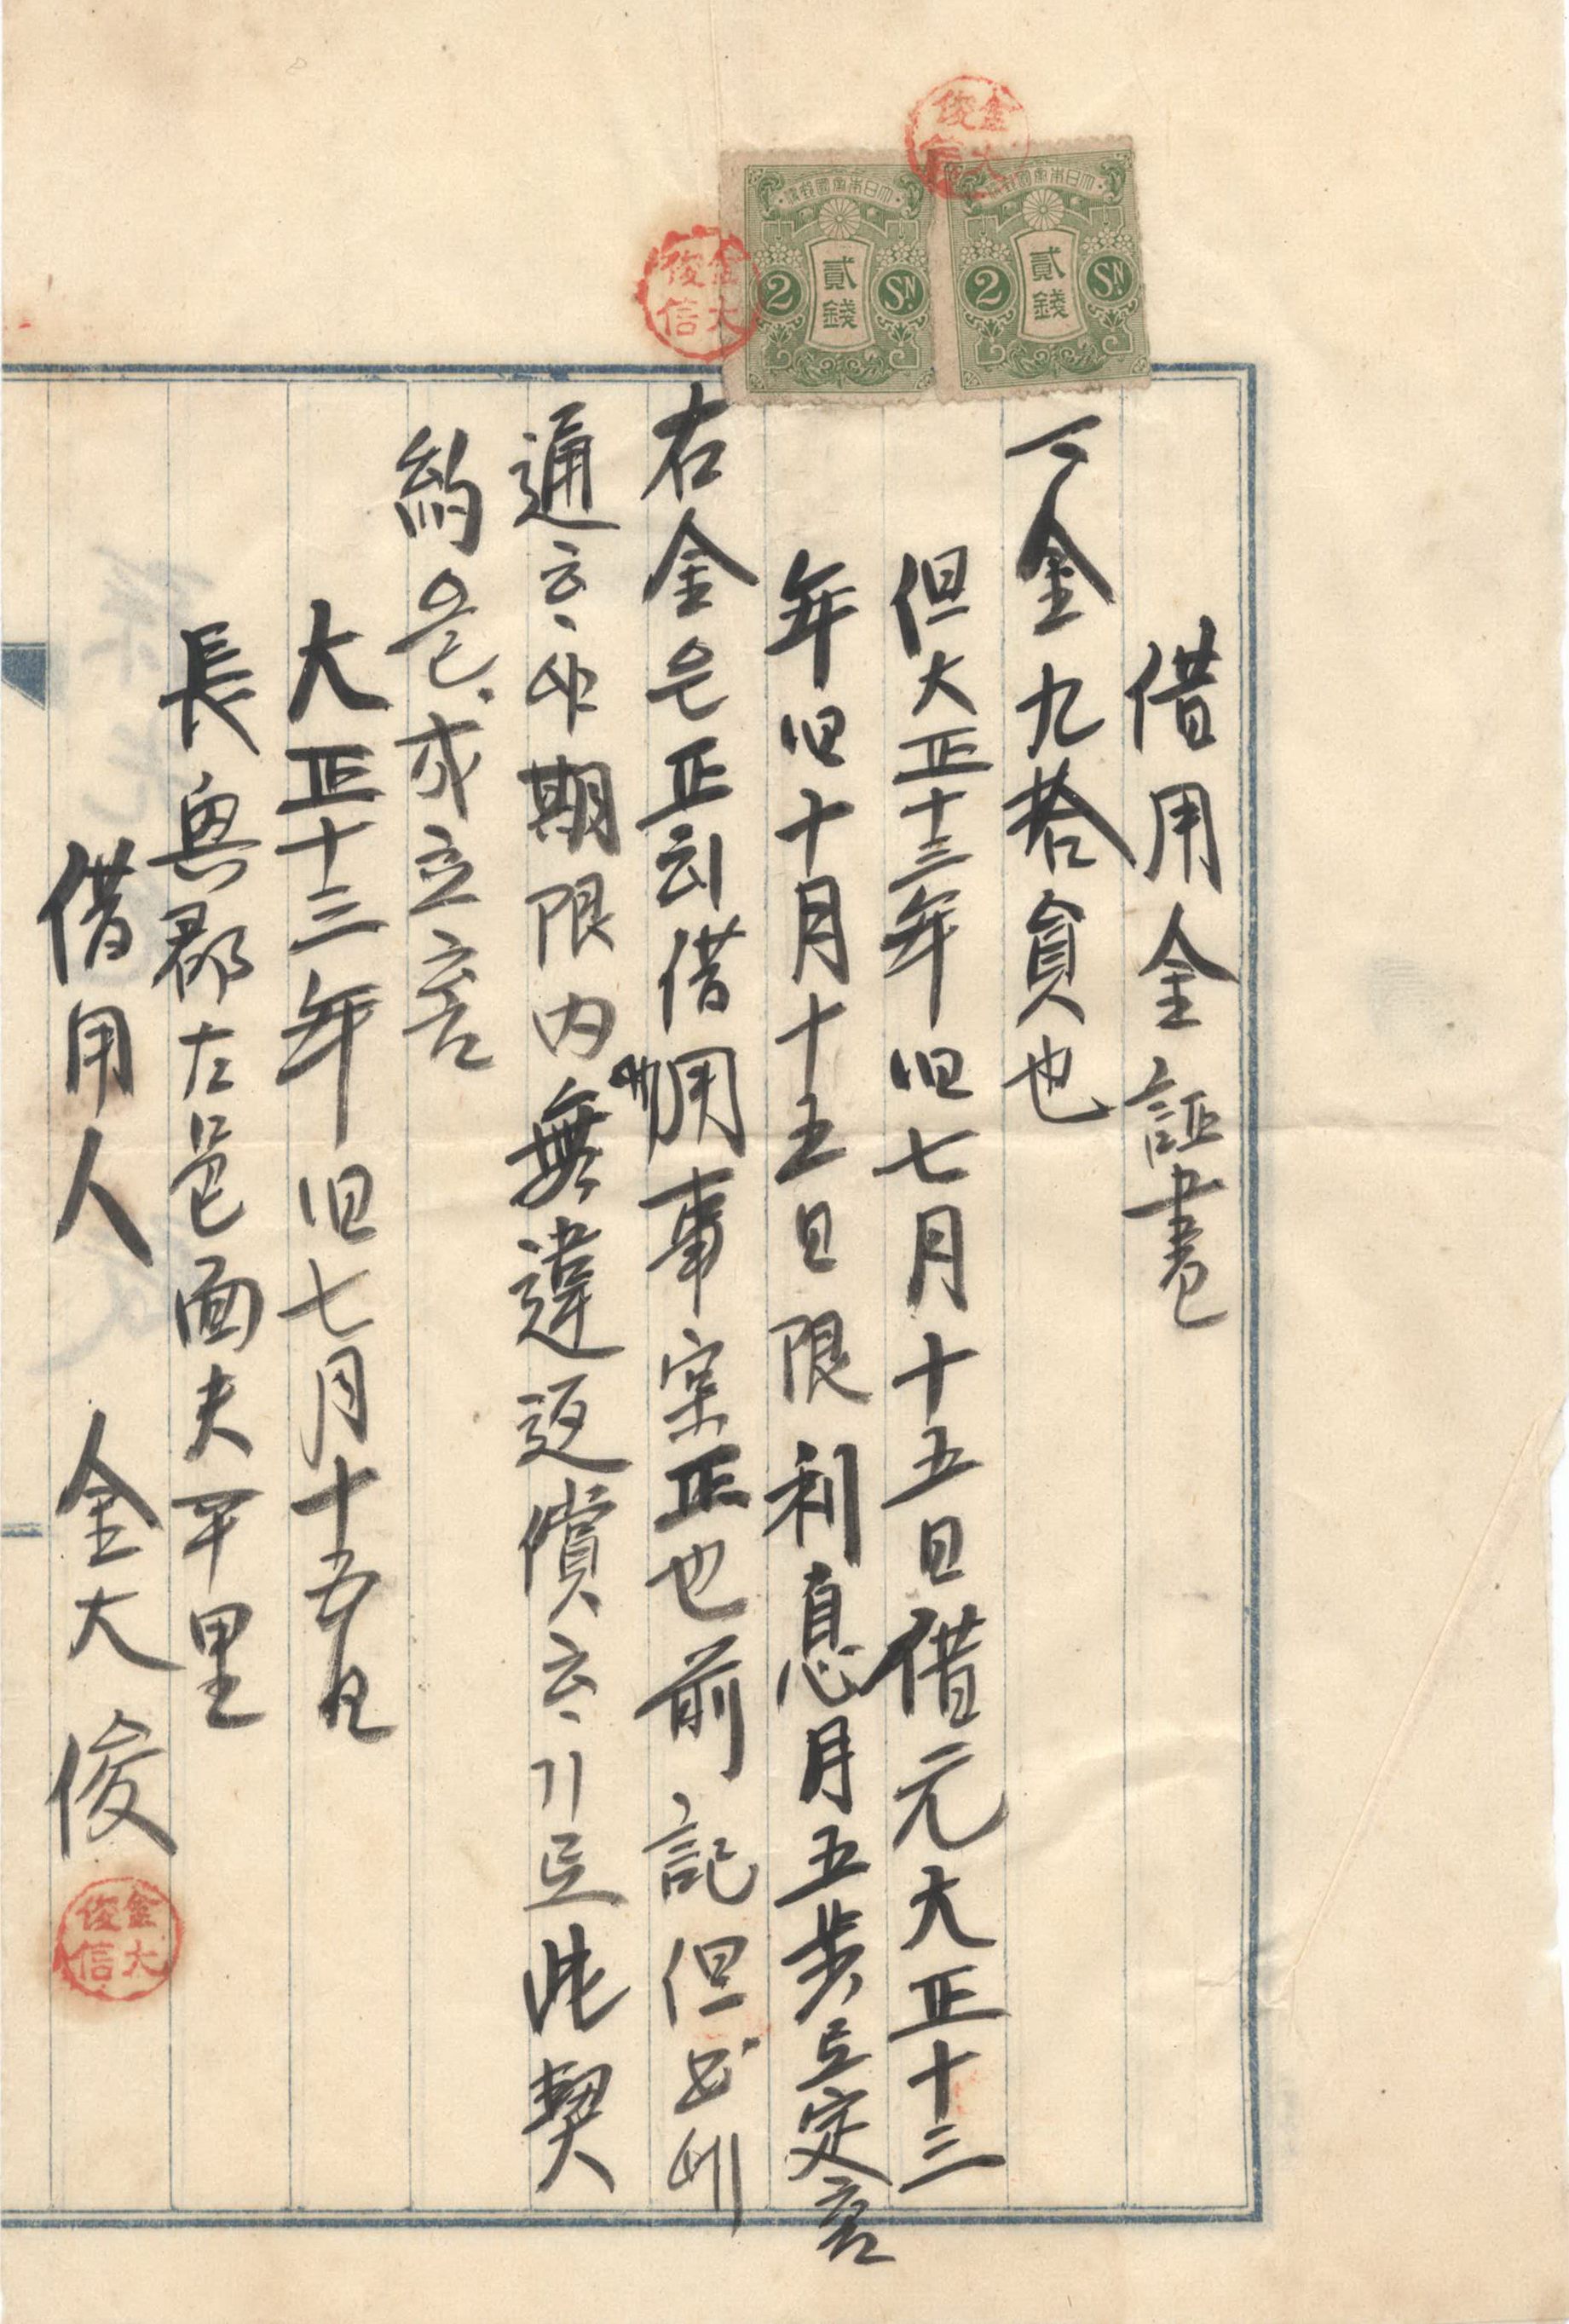 借用金証書
一金九拾貟也
但大正十三年旧七月十五日借元大正十三
年旧十月十五日限利息月五步로定홈
右金은正히借用事実正也前記但書에
通하야期限内無違返償하기로此契
約을成立홈
大正十三年旧七月十五日
長興郡古邑面夫平里
借用人 金大俊
金大俊信
大日本帝國郵便
貳錢
2 Sn.
大日本帝國郵便
貳錢
2 Sn.
金大俊信
金大俊信